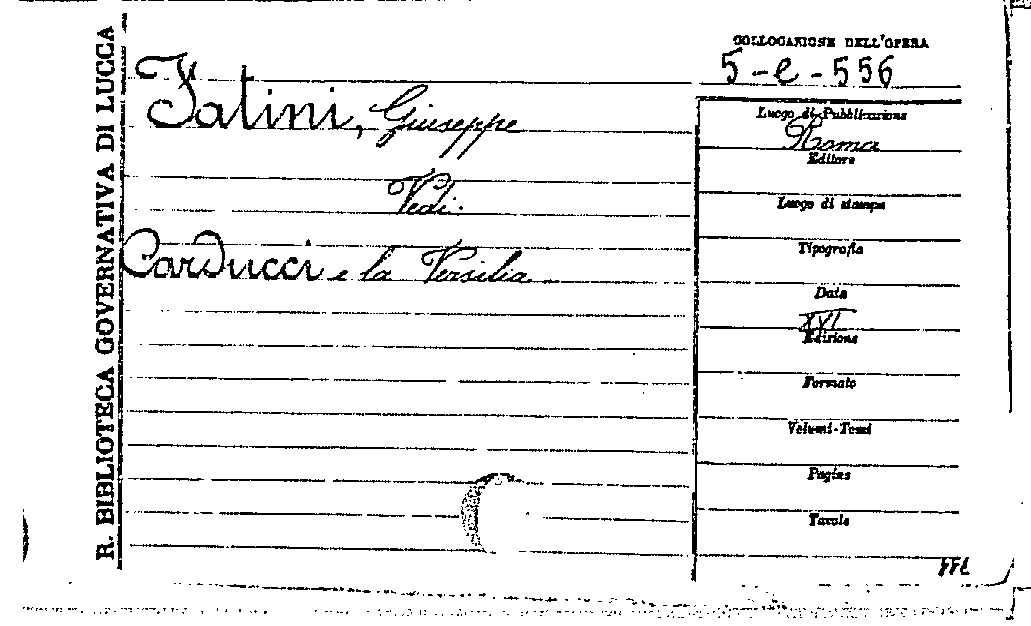 R. BIBLIOTECA GOVERNATIVA DI LUCCA
COLLOCAZIONE DELL'OPERA
5-e-556
Fatini, Giuseppe
Vedi:
Carducci e la Versilia
Luogo di Pubblicazione
Roma
Editore
Luogo di stampa
Tipografia
Data
XVI
Edizione
Formato
Volumi-Tomi
Pagine
Tavole